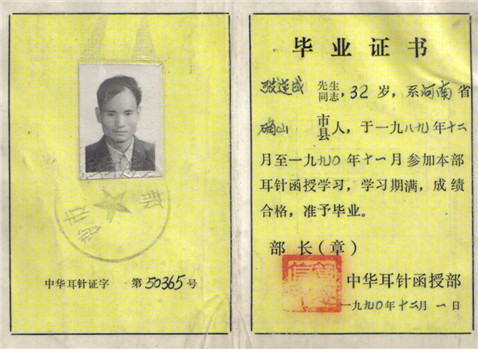 中华耳针证字 第50365号
毕业证书
张遂成 先生
同志,32岁,系河南省
确山 市
县 人,于一九八九年十二
月至一九九〇年十一月参加本部
耳针函授学习,学习期满,成绩
合格,准予毕业。
部长(章)
中华耳针函授部
一九九〇年十二月一日